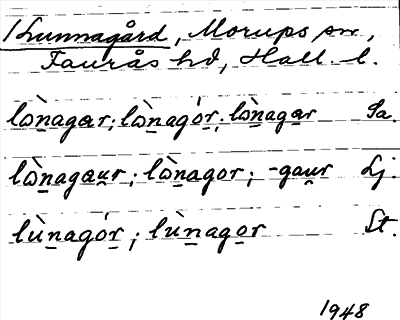 1 Lunnagård, Morups sn,
Faurås hd, Hall. l.
lànagar; lànagór; lànagar Sa.
lànagaur; lànagor; -gaur Lj.
lùnagór; lùnagor St.
1948